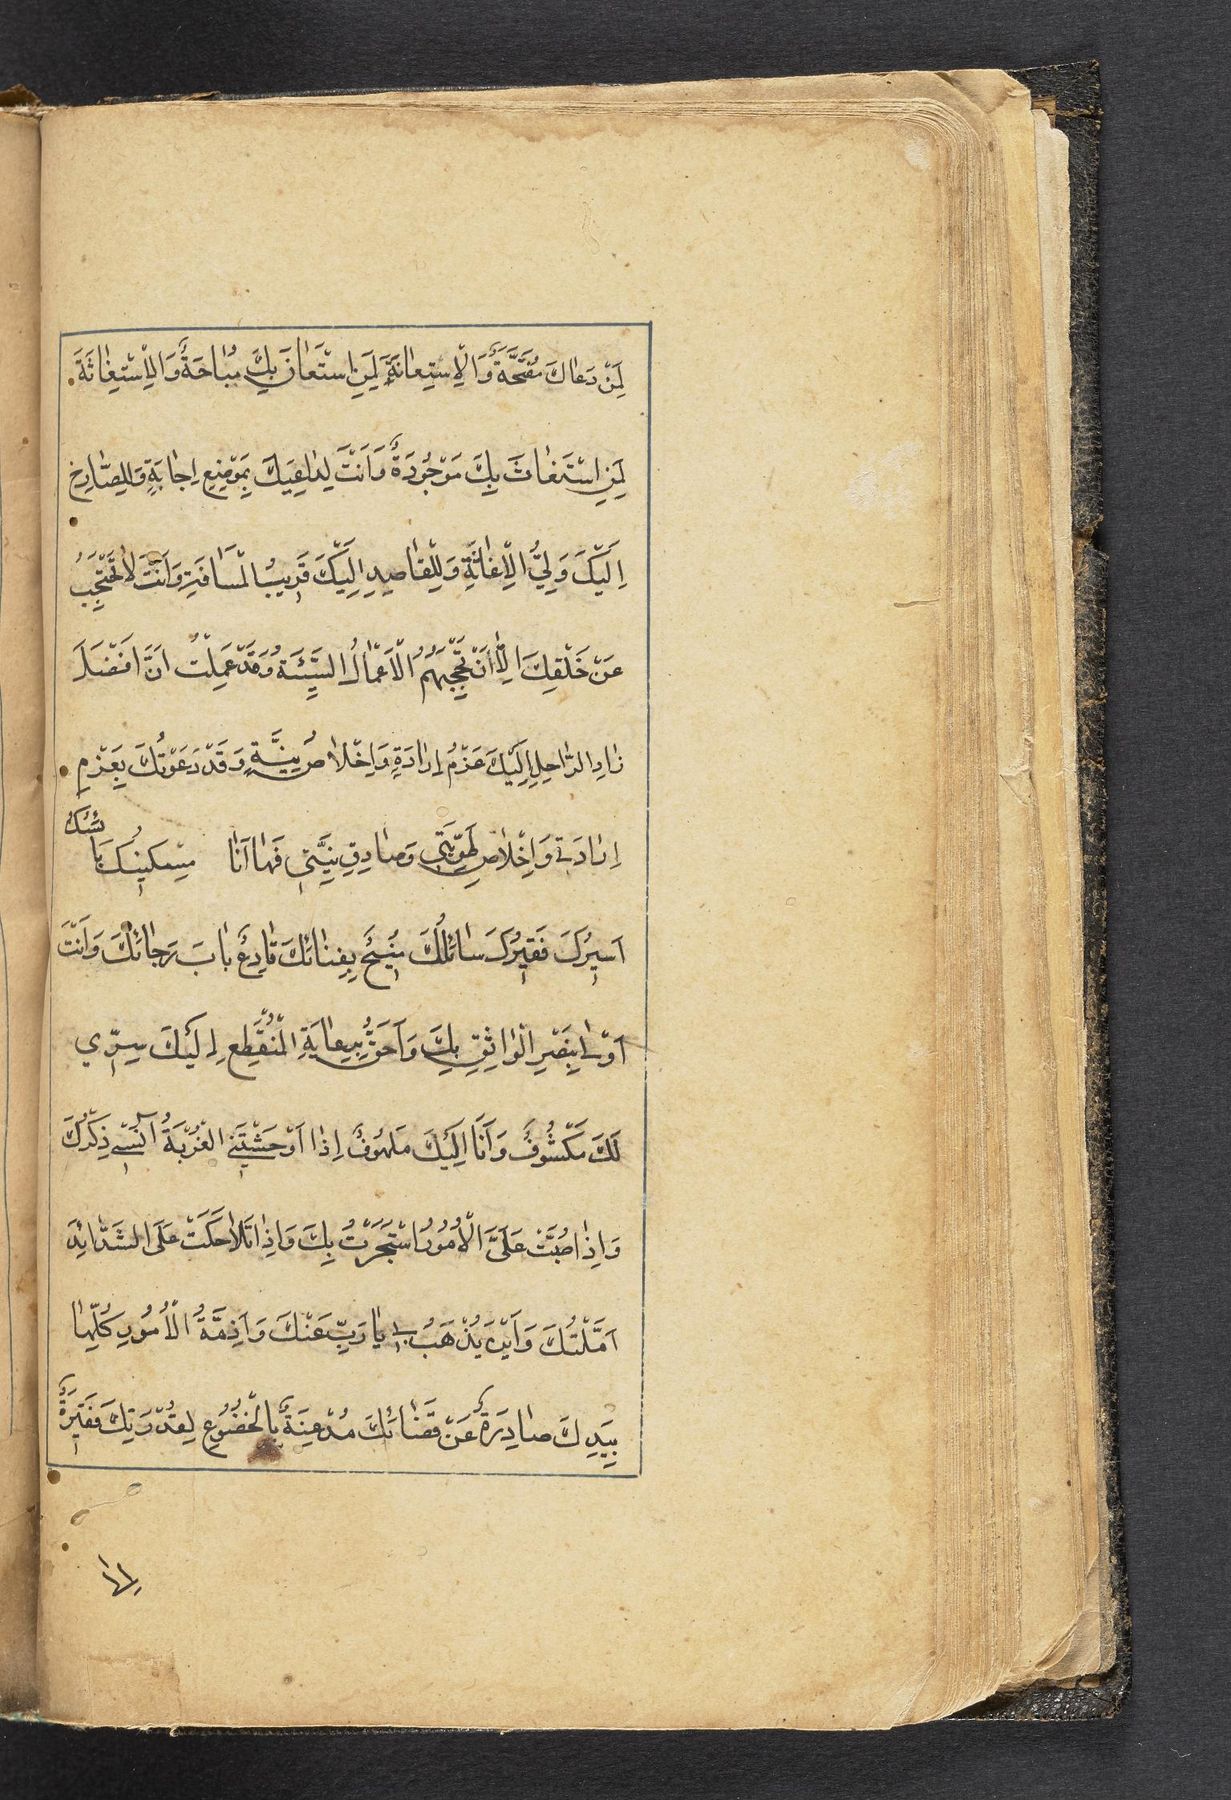 لِمَنْ دَعَاكَ مُفَتَّحَةٌ وَالْاِسْتِعَانَةَ لِمَنِ اسْتَعَانَ بِكَ مُبَاحَةٌ وَالْاِسْتِغَاثَةَ
لِمَنِ اسْتَغَاثَ بِكَ مَوْجُودَةٌ وَاَنْتَ لِدَاعِيكَ بِمَوْضِعِ اِجَابَةٍ وَلِلصَّارِخِ
اِلَيْكَ وَلِيُّ الْاِغَاثَةِ وَلِلْقَاصِدِ اِلَيْكَ قَرِيبُ الْمَسَافَةِ وَاَنْتَ لَا تَحْتَجِبُ
عَنْ خَلْقِكَ اِلَّا اَنْ تَحْجُبَهُمُ الْاَعْمَالُ السَّيِّئَةُ وَقَدْ عَمِلْتُ اَنَّ اَفْضَلَ
زَادِ الرَّاحِلِ اِلَيْكَ عَزْمُ اِرَادَةٍ وَاِخْلَاصُ نِيَّةٍ وَقَدْ دَعَوْتُكَ بِعَزْمِ
اِرَادَتِي وَاِخْلَاصِ طَوِيَّتِي وَصَادِقِ نِيَّتِي فَهَا اَنَا مِسْكِينُكَ بَائِسُكَ
اَسِيرُكَ فَقِيرُكَ سَائِلُكَ مُنِيخٌ بِفِنَائِكَ قَارِعٌ بَابَ رَجَائِكَ وَاَنْتَ
اَوْلَى بِنَصْرِ الْوَاثِقِ بِكَ وَاَحَقُّ بِرِعَايَةِ الْمُنْقَطِعِ اِلَيْكَ سِرِّي
لَكَ مَكْشُوفٌ وَاَنَا اِلَيْكَ مَلْهُوفٌ اِذَا اَوْحَشَتْنِي الْغُرْبَةُ آنَسَنِي ذِكْرُكَ
وَاِذَا صُبَّتْ عَلَيَّ الْاُمُورُ اسْتَجَرْتُ بِكَ وَاِذَا تَلَاحَكَتْ عَلَى الشَّدَائِدَ
اَمَّلْتُكَ وَاَيْنَ يُذْهَبُ بِي يَا رَبِّ عَنْكَ وَاَزِمَّةُ الْاُمُورِ كُلِّهَا
بِيَدِكَ صَادِرَةٌ عَنْ قَضَائِكَ مُذْعِنَةٌ بِالْخُضُوعِ لِقُدْرَتِكَ فَقِيرَةٌ